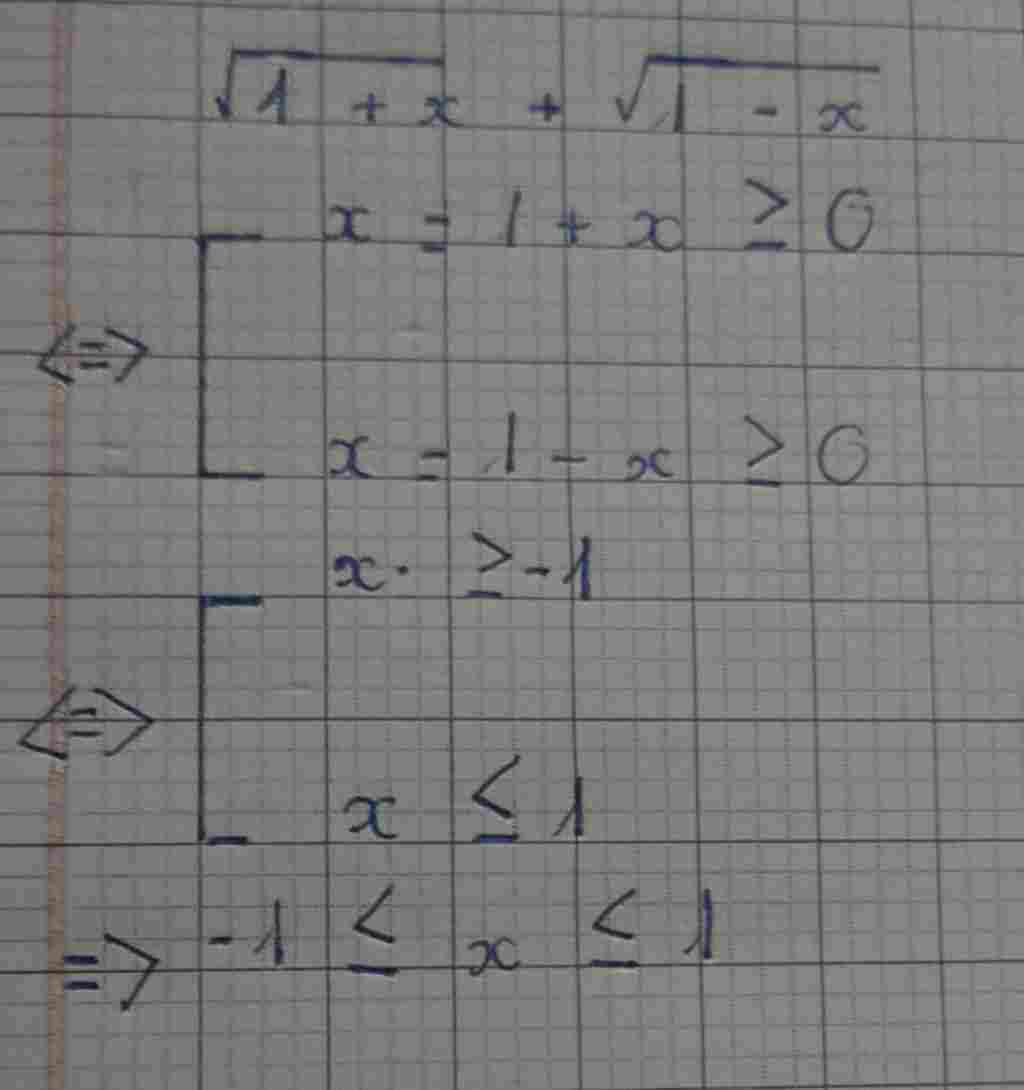 √(1 + x) + √(1 - x)
x = 1 + x ≥ 0
<=>
x = 1 - x ≥ 0
x. ≥ -1
<=>
x ≤ 1
=> -1 ≤ x ≤ 1